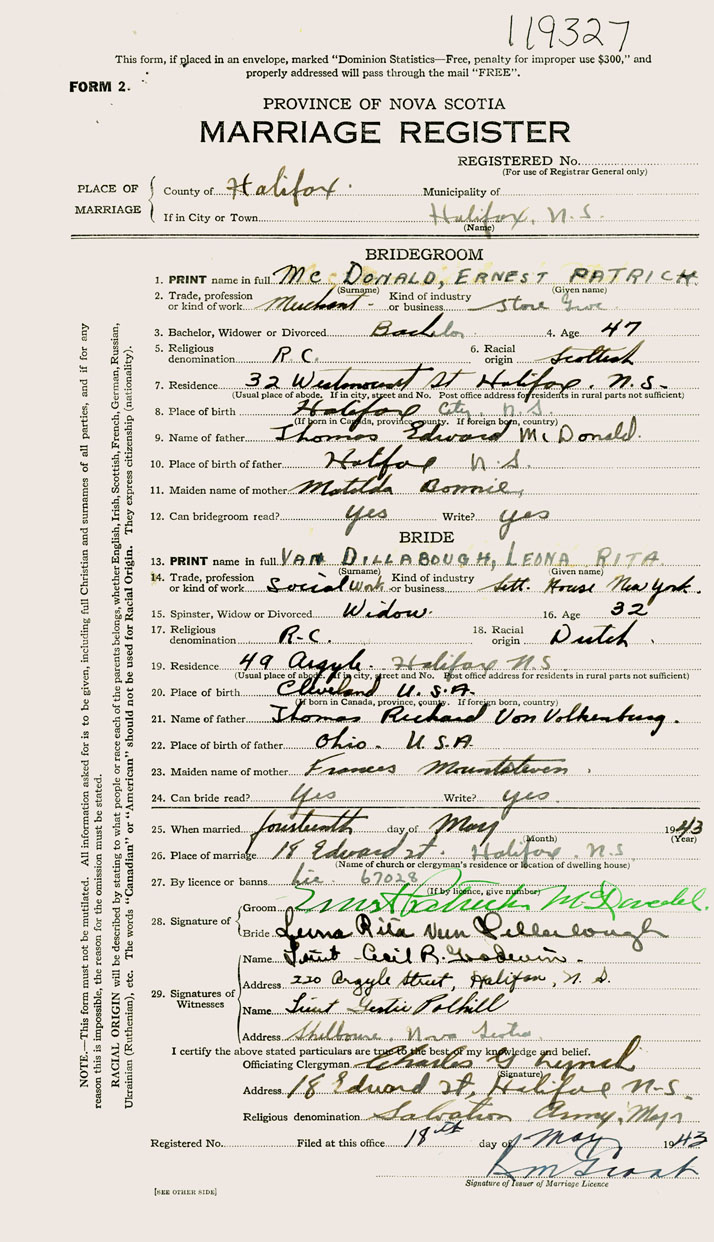 119327
This form, if placed in an envelope, marked "Dominion Statistics—Free, penalty for improper use $300," and
properly addressed will pass through the mail "FREE".
FORM 2.
PROVINCE OF NOVA SCOTIA
MARRIAGE REGISTER
REGISTERED No.
(For use of Registrar General only)
PLACE OF MARRIAGE
County of Halifax. Municipality of
If in City or Town Halifax, N.S.
(Name)
BRIDEGROOM
1. PRINT name in full Mc DONALD, ERNEST PATRICK
(Surname) (Given name)
2. Trade, profession or kind of work Merchant Kind of industry or business Store
3. Bachelor, Widower or Divorced Bachelor 4. Age 47
5. Religious denomination R.C. 6. Racial origin Scottish
7. Residence 32 Westmount St Halifax. N.S.
(Usual place of abode. If in city, street and No. Post office address for residents in rural parts not sufficient)
8. Place of birth Halifax City, N.S.
(If born in Canada, province, county. If foreign born, country)
9. Name of father Thomas Edward McDonald.
10. Place of birth of father Halifax N.S.
11. Maiden name of mother Matilda Bonnie
12. Can bridegroom read? yes Write? yes
BRIDE
13. PRINT name in full VAN DILLABOUGH, LEONA RITA
(Surname) (Given name)
14. Trade, profession or kind of work Social Work Kind of industry or business Sett. House New York.
15. Spinster, Widow or Divorced Widow. 16. Age 32
17. Religious denomination R-C. 18. Racial origin Dutch.
19. Residence 49 Argyle. Halifax N.S.
(Usual place of abode. If in city, street and No. Post office address for residents in rural parts not sufficient)
20. Place of birth Cleveland U.S.A.
(If born in Canada, province, county. If foreign born, country)
21. Name of father Thomas Richard Von Volkenburg.
22. Place of birth of father Ohio. U.S.A.
23. Maiden name of mother Frances Mountsteven
24. Can bride read? Yes Write? yes.
25. When married fourteenth day of May 1943
(Month) (Year)
26. Place of marriage 18 Edward St. Halifax. N.S
(Name of church or clergyman's residence or location of dwelling house)
27. By licence or banns Lic. 67028
(If by licence, give number)
28. Signature of
Groom Ernest Patrick McDonald.
Bride Leona Rita Van Dillabough
29. Signatures of Witnesses
Name Lieut Cecil R. Goodwin.
Address 220 Argyle Street, Halifax, N.S.
Name Lieut Gertie Polhill
Address Shelburne, Nova Scotia
I certify the above stated particulars are true to the best of my knowledge and belief.
Officiating Clergyman Charles G Lynch
(Signature)
Address 18 Edward St, Halifax N-S.
Religious denomination Salvation Army. Major
Registered No. Filed at this office 18th day of May 1943
Grant
Signature of Issuer of Marriage Licence
[SEE OTHER SIDE]
NOTE.—This form must not be mutilated. All information asked for is to be given, including full Christian and surnames of all parties, and if for any
reason this is impossible, the reason for the omission must be stated.
RACIAL ORIGIN will be described by stating to what people or race each of the parents belongs, whether English, Irish, Scottish, French, German, Russian,
Ukrainian (Ruthenian), etc. The words "Canadian" or "American" should not be used for Racial Origin. They express citizenship (nationality).